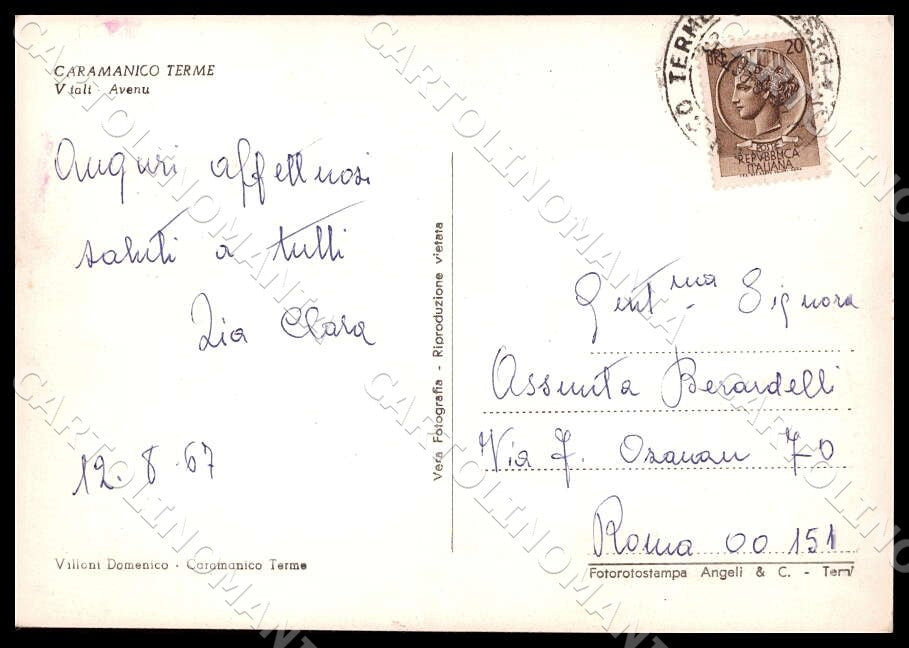 CARAMANICO TERME
Viali - Avenu
Auguri affettuosi
saluti a tutti
Zia Clara
12.8.67
Villoni Domenico - Caramanico Terme
Vera Fotografia - Riproduzione vietata
TERME
LIRE 20
REPVBBLICA
ITALIANA
Gent.ma Signora
Assunta Berardelli
Via F. Ozanam 70
Roma 00151
Fotorotostampa Angeli & C. - Terni
CARTOLINOMANIA